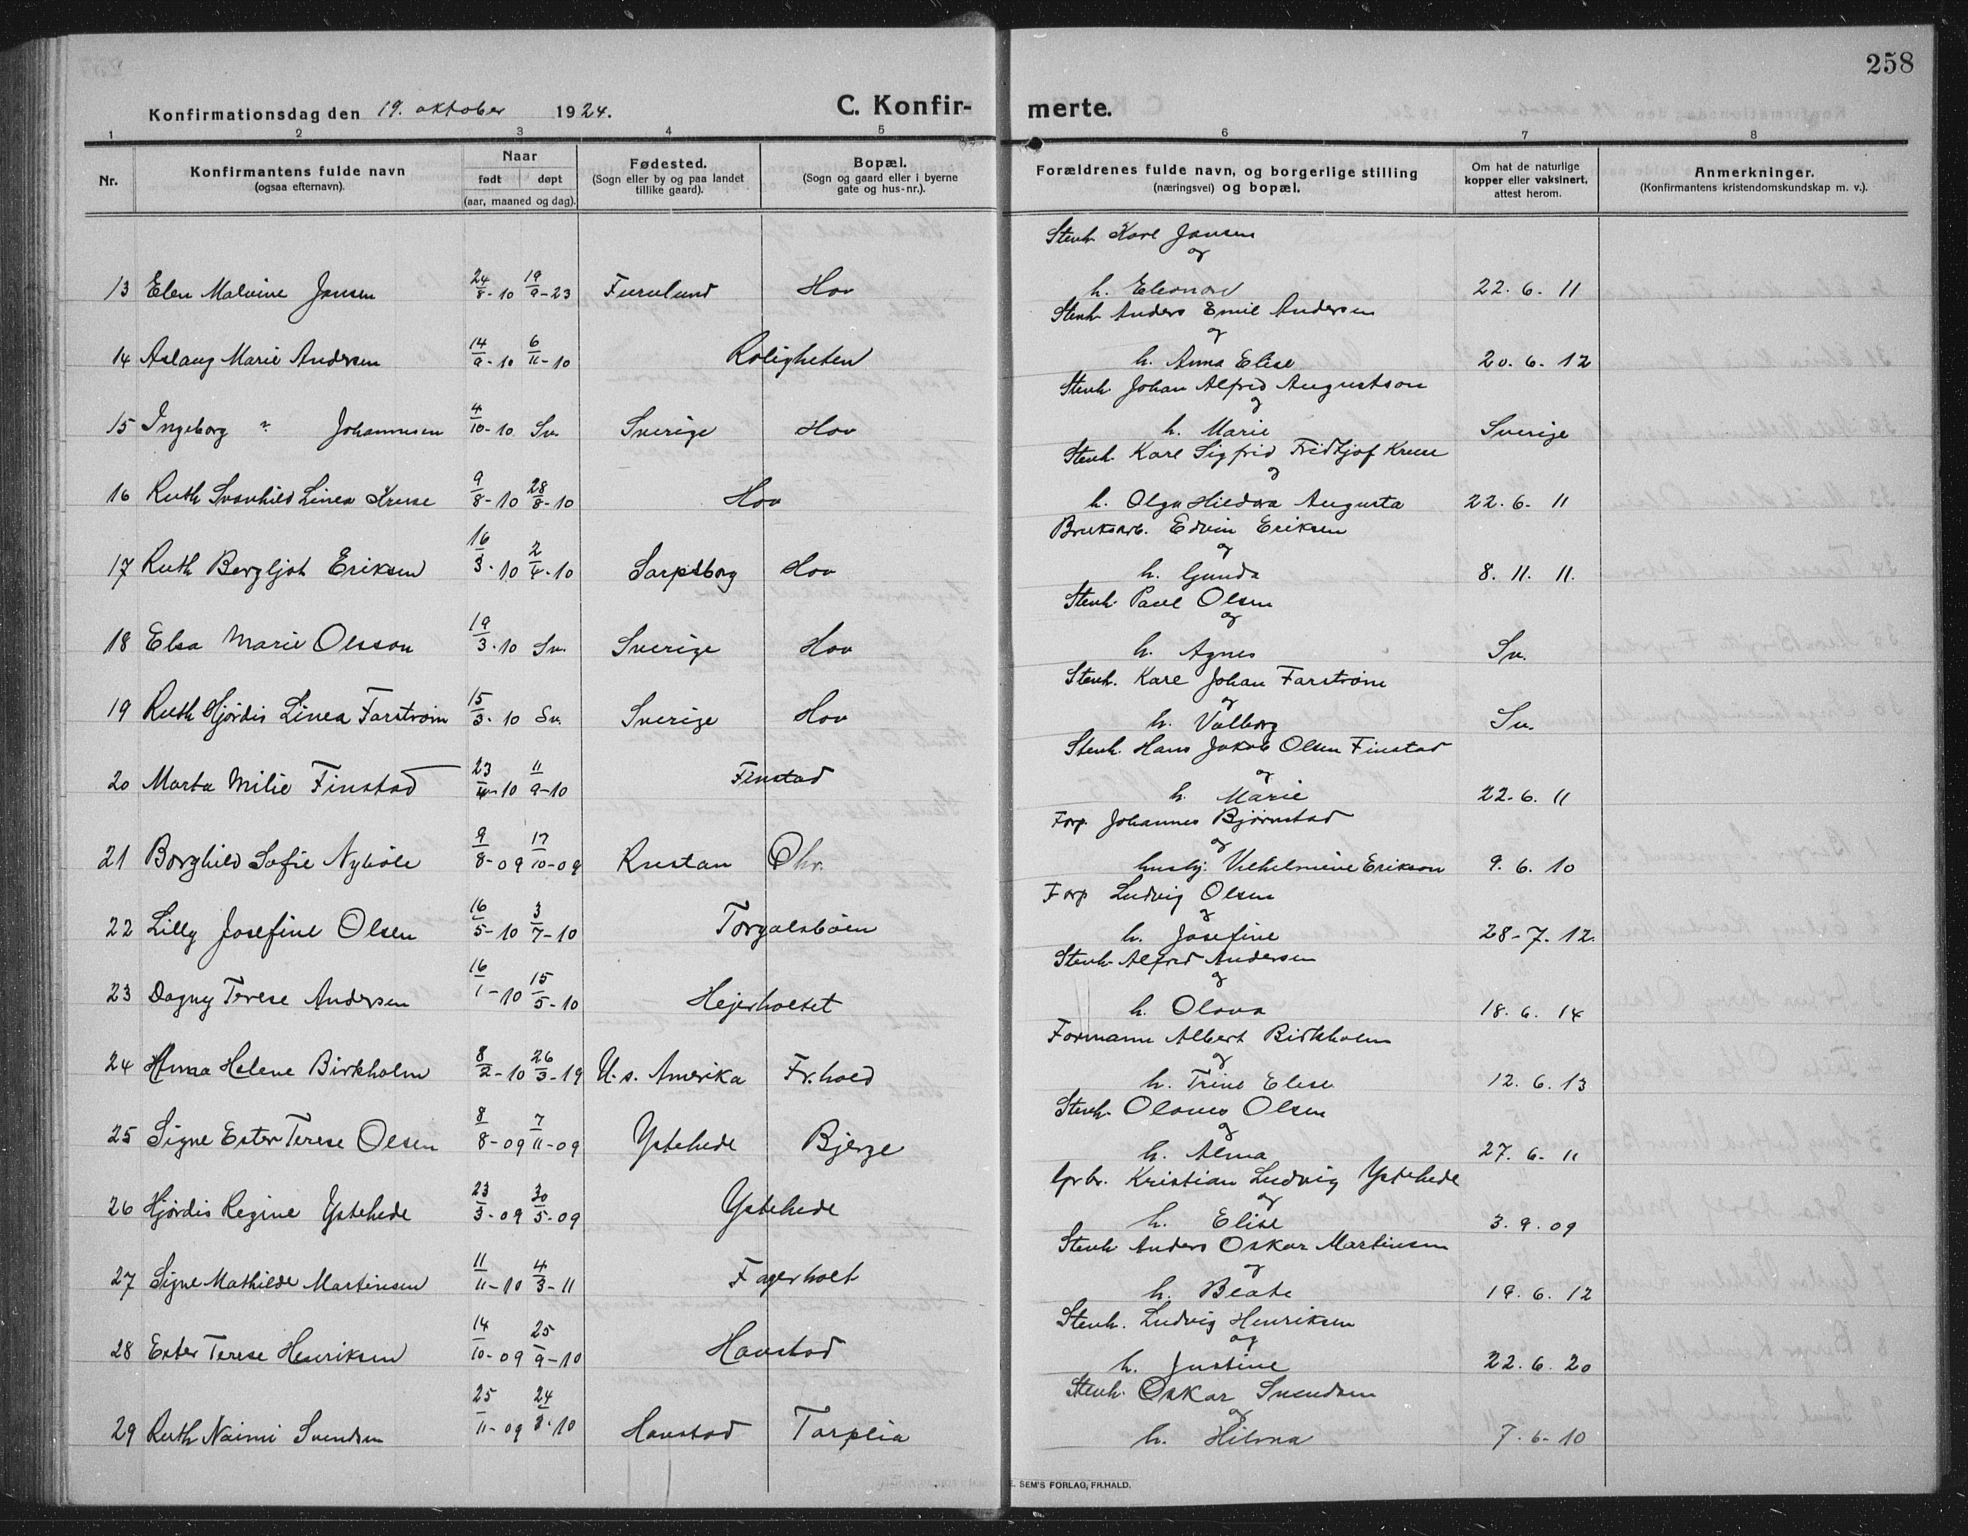 258
Konfirmationsdag den 19. oktober 1924. C. Konfir- merte.
1 2 3 4 5 6 7 8
Nr. Konfirmantens fulde navn (ogsaa efternavn). Naar født døpt (aar, maaned og dag). Fødested. (Sogn eller by og paa landet tillike gaard). Bopæl. (Sogn og gaard eller i byerne gate og hus-nr.). Forældrenes fulde navn, og borgerlige stilling (næringsvei) og bopæl. Om hat de naturlige kopper eller vaksinert, attest herom. Anmerkninger. (Konfirmantens kristendomskundskap m. v.).
Stenh. Karl Jansen
og
13 Elen Malvine Jansen 24/8-10 19/9-23 Furulund Hov h. Eleonore 22. 6. 11
Stenh. Anders Emil Andersen
og
14 Aslaug Marie Andersen 14/9-10 6/11-10 Roligheten h. Anna Elise 20. 6. 12
Stenh. Johan Alfred Augustson
og
15 Ingeborg " Johannesen 4/10-10 Sv. Sverige Hov h. Marie Sverige
Stenh. Karl Sigfrid Fridtjof Kruse
og
16 Ruth Svanhild Linea Kruse 9/8-10 28/8-10 Hov h. Olga Hildora Augusta 22. 6. 11
Bruksarb. Edvin Eriksen
og
17 Ruth Bergljot Eriksen 16/3-10 2/4-10 Sarpsborg Hov h. Gunda 8. 11. 11.
Stenh. Paul Olsen
og
18 Elsa Marie Olsson 19/3-10 Sv. Sverige Hov h. Agnes Sv.
Stenh. Karl Johan Farstrøm
og
19 Ruth Hjørdis Linea Farstrøm 15/3-10 Sv. Sverige Hov h. Valborg Sv.
Stenh. Hans Jakob Olsen Finstad
og
20 Marta Milie Finstad 23/4-10 11/9-10 Finstad h. Marie 22. 6. 11
Forp. Johannes Bjørnstad
og
21 Borghild Sofie Nybøle 9/8-09 17/10-09 Rustan Ohr. husbj. Vilhelmine Erikson 9. 6. 10
Forp Ludvig Olsen
og
22 Lilly Josefine Olsen 16/5-10 3/7-10 Torgalsbøen h. Josefine 28-7. 12.
Stenh. Alfred Andersen
og
23 Dagny Terese Andersen 16/1-10 15/5-10 Hejerholtet h. Olava 18. 6. 14
Formann Albert Birkholm
og
24 Anna Helene Birkholm 8/2-10 26/3-19 U. s. Amerika Fr.hald h. Trine Elise 12. 6. 13
Stenh. Olaves Olsen
og
25 Signe Ester Terese Olsen 8/8-09 7/11-09 Ystehede Bjerge h. Alma 27. 6. 11
Grbr. Kristian Ludvig Ystehede
og
26 Hjørdis Regine Ystehede 23/3-09 30/5-09 Ystehede h. Elise 3. 9. 09
Stenh. Anders Oskar Martinsen
og
27 Signe Mathilde Martinsen 11/11-10 4/3-11 Fagerholt h. Beate 19. 6. 12
Stenh. Ludvig Henriksen
og
28 Ester Terese Henriksen 14/10-09 25/9-10 Havstad h. Justine 22. 6. 20
Stenh. Oskar Svendsen
og
29 Ruth Naimi Svendsen 25/11-09 24/3-10 Havstad Torplia h. Hilma 7. 6. 10
E. SEM'S FORLAG, FR.HALD.